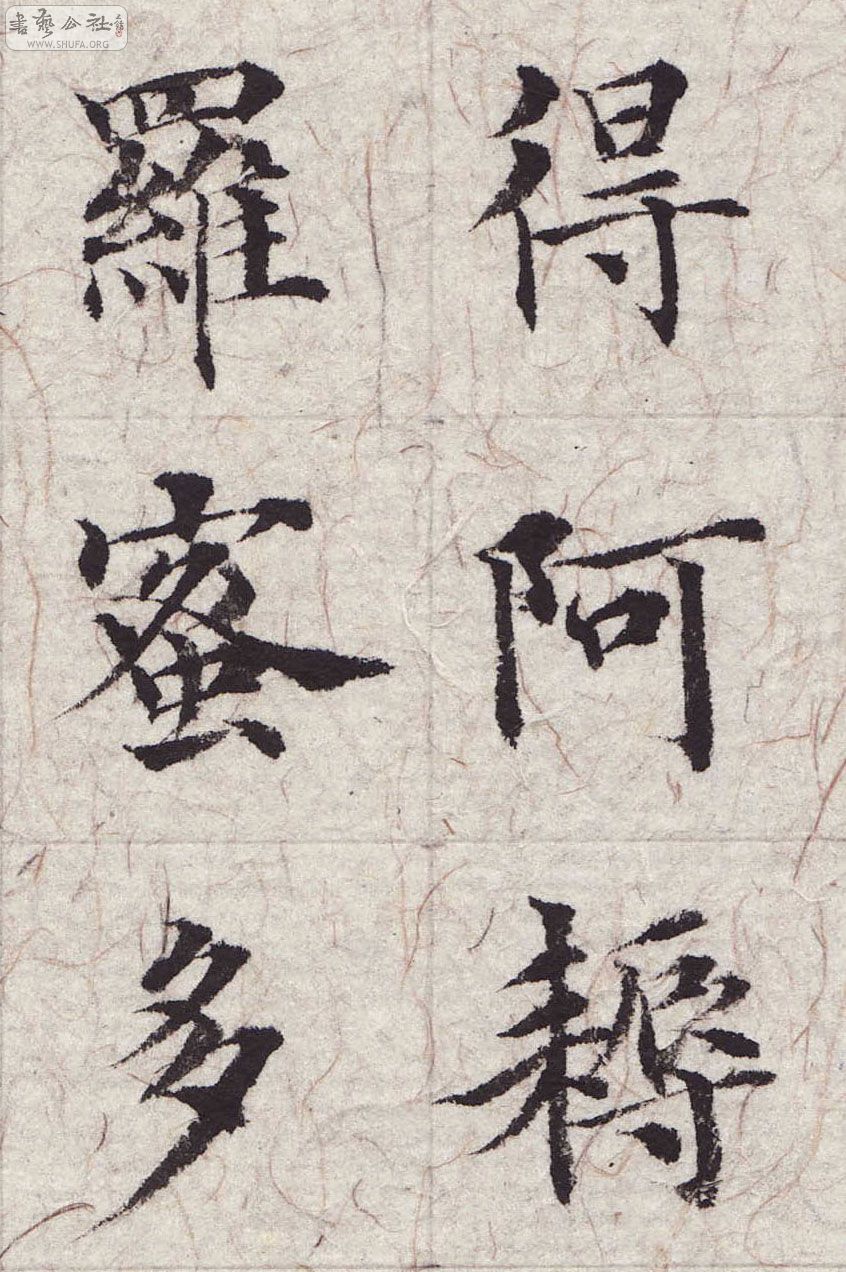 得阿耨
羅蜜多
書藝公社
WWW.SHUFA.ORG